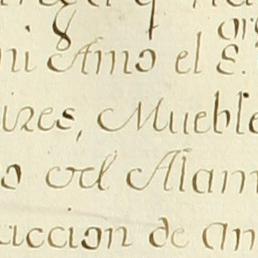 mi Amo el E.
ires, Mueble
o del Alam
accion de an